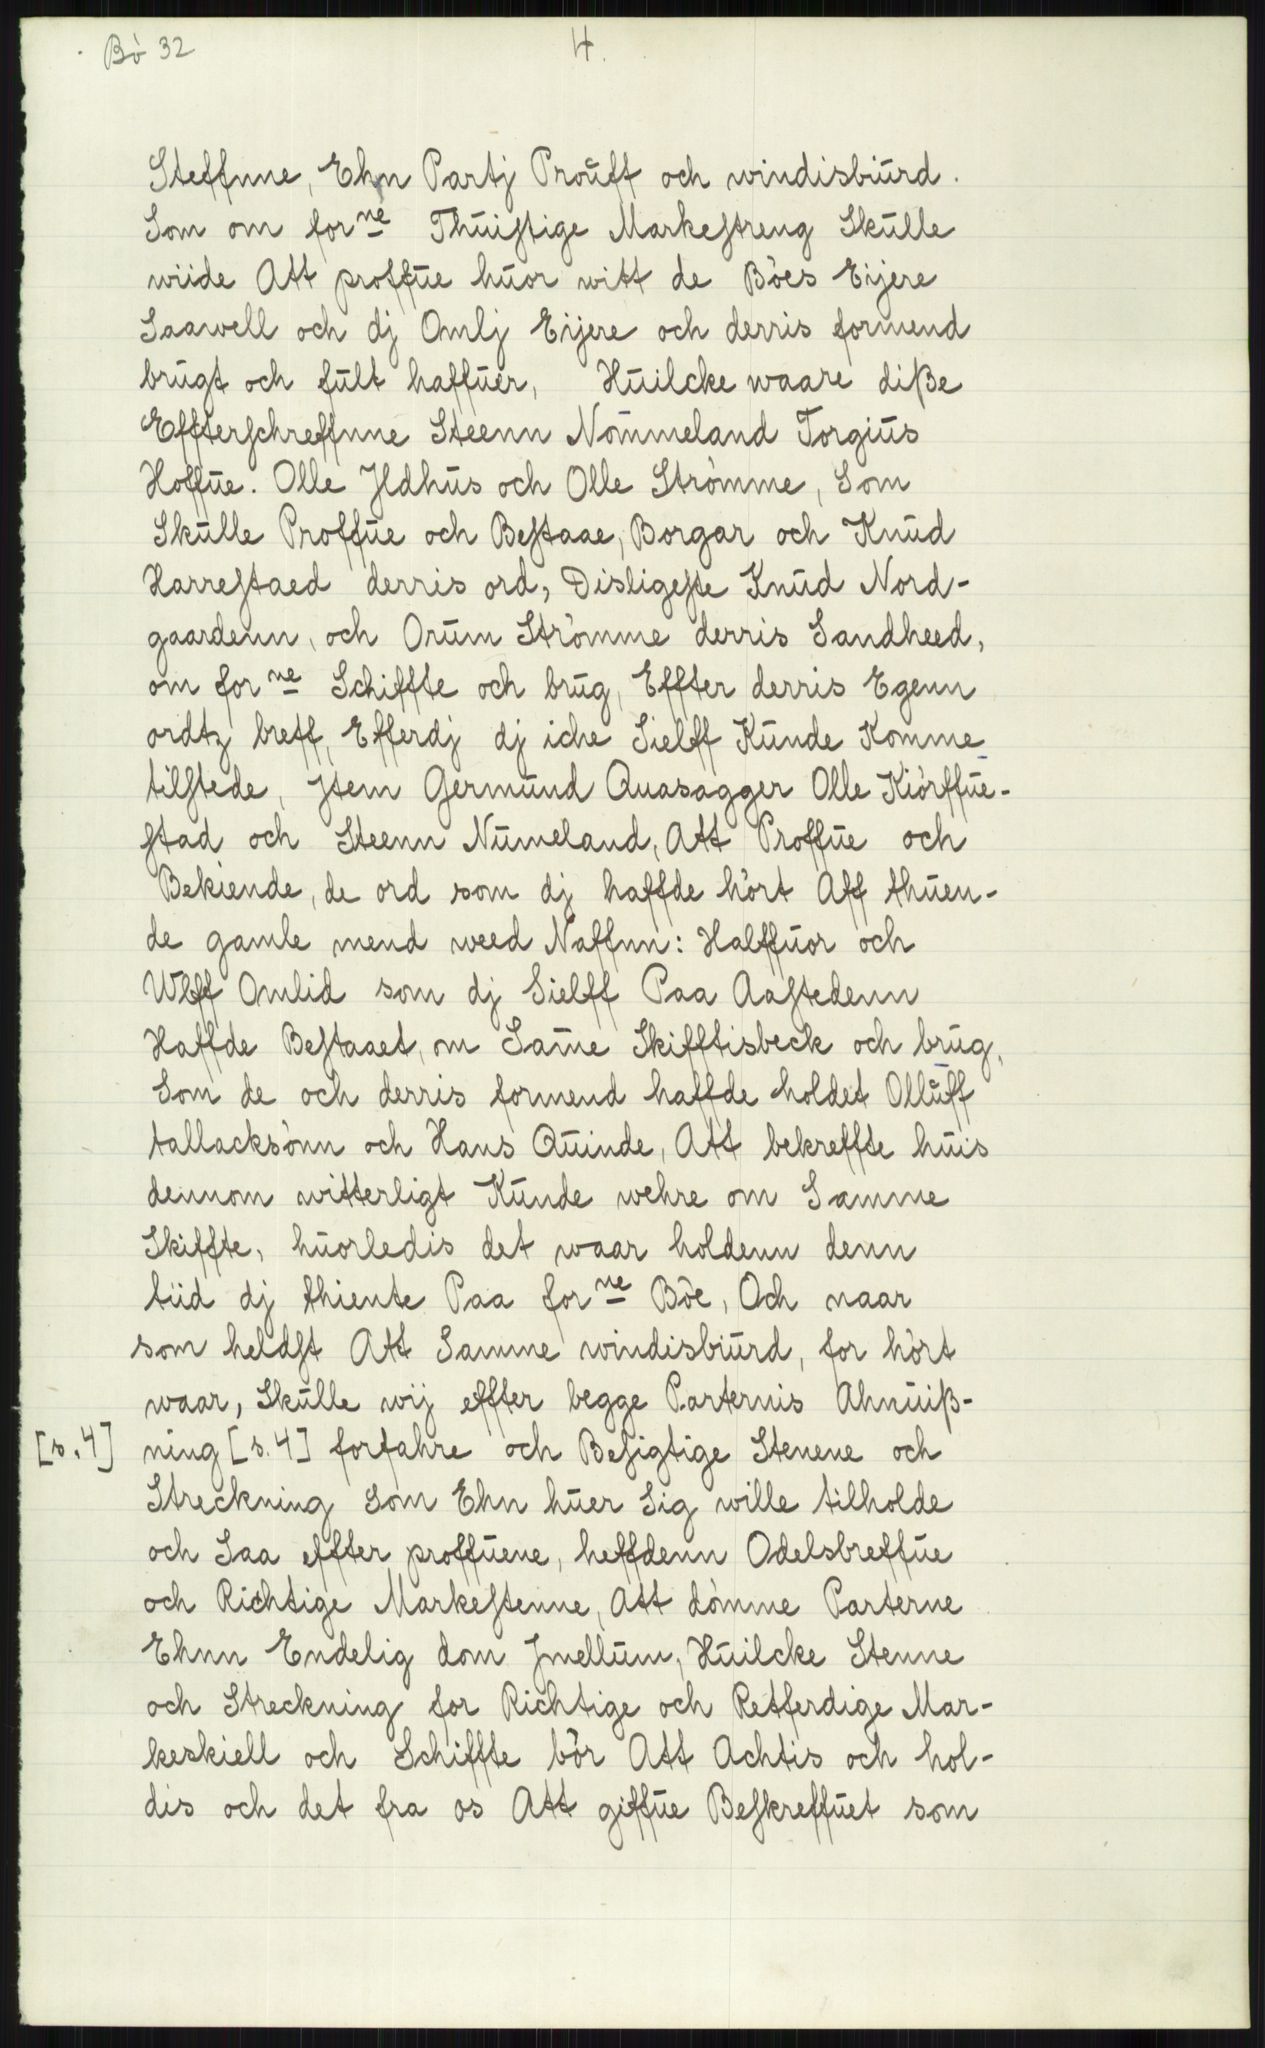 Bò 32
4.
Steffnne, Ehn Partj Proŭff och windisbiŭrd.
Som om forne Thŭistige Markestreng Skŭlle
wiide Att proffŭe hŭor witt de Bòes Eijere
Saawell och dj Omlj Eijere och derris formend
brŭgt och fŭlt haffŭer, Hŭilcke waare diße
Effterschreffnne Steenn Nom̄meland Torgiŭs
Hoffŭe. Olle Jldhŭs och Olle Stròmme, Som
Skŭlle Proffŭe och Bestaae, Borgar och Knŭd
Harrestaed derris ord, Disligeste Knŭd Nord-
gaardenn, och Orŭm Stròmme derris Sandheed,
om forne Schiffte och brŭg, Effter derris Egenn
ordtz breff, Efferdj dj iche Sielff Kŭnde Komme
tilstede, Jtem Germŭnd Qŭasagger Olle Kiòrffŭe-
stad och Steenn Nŭmeland, Att Proffŭe och
Bekiende, de ord som dj haffde hòrt Aff thŭen-
de gamle mend weed Naffnn: Halffŭor och
Ŭlff Omlid som dj Sielff Paa Aastedenn
Haffde Bestaaet, om Sam̄e Skifftisbeck och brŭg,
Som de och derris formend haffde holdet Ollŭff
tallacksònn och Hans Qŭinde, Att bekreffte hŭis
dennom witterligt Kŭnde wehre om Samme
Skiffte, hŭorledis det waar holdenn denn
tiid dj thiente Paa forne Bòe, Och naar
som heldst Att Samme windisbiŭrd, for hòrt
waar, Skŭlle wij effter begge Parternis Ahnŭiß-
[s. 4] ning [s. 4] forfahre och Besigtige Stenene och
Streckning som Ehn hŭer Sig wille tilholde
och Saa effter proffŭene, heffdenn Odelsbreffŭe
och Richtige Markestenne, Att dòmme Parterne
Ehnn Endelig dom Jmellŭm, Hŭilcke Stenne
och Streckning for Richtige och Retferdige Mar-
keskiell och Schiffte bòr Att Achtis och hol-
dis och det fra os Att giffŭe Beskreffŭet som